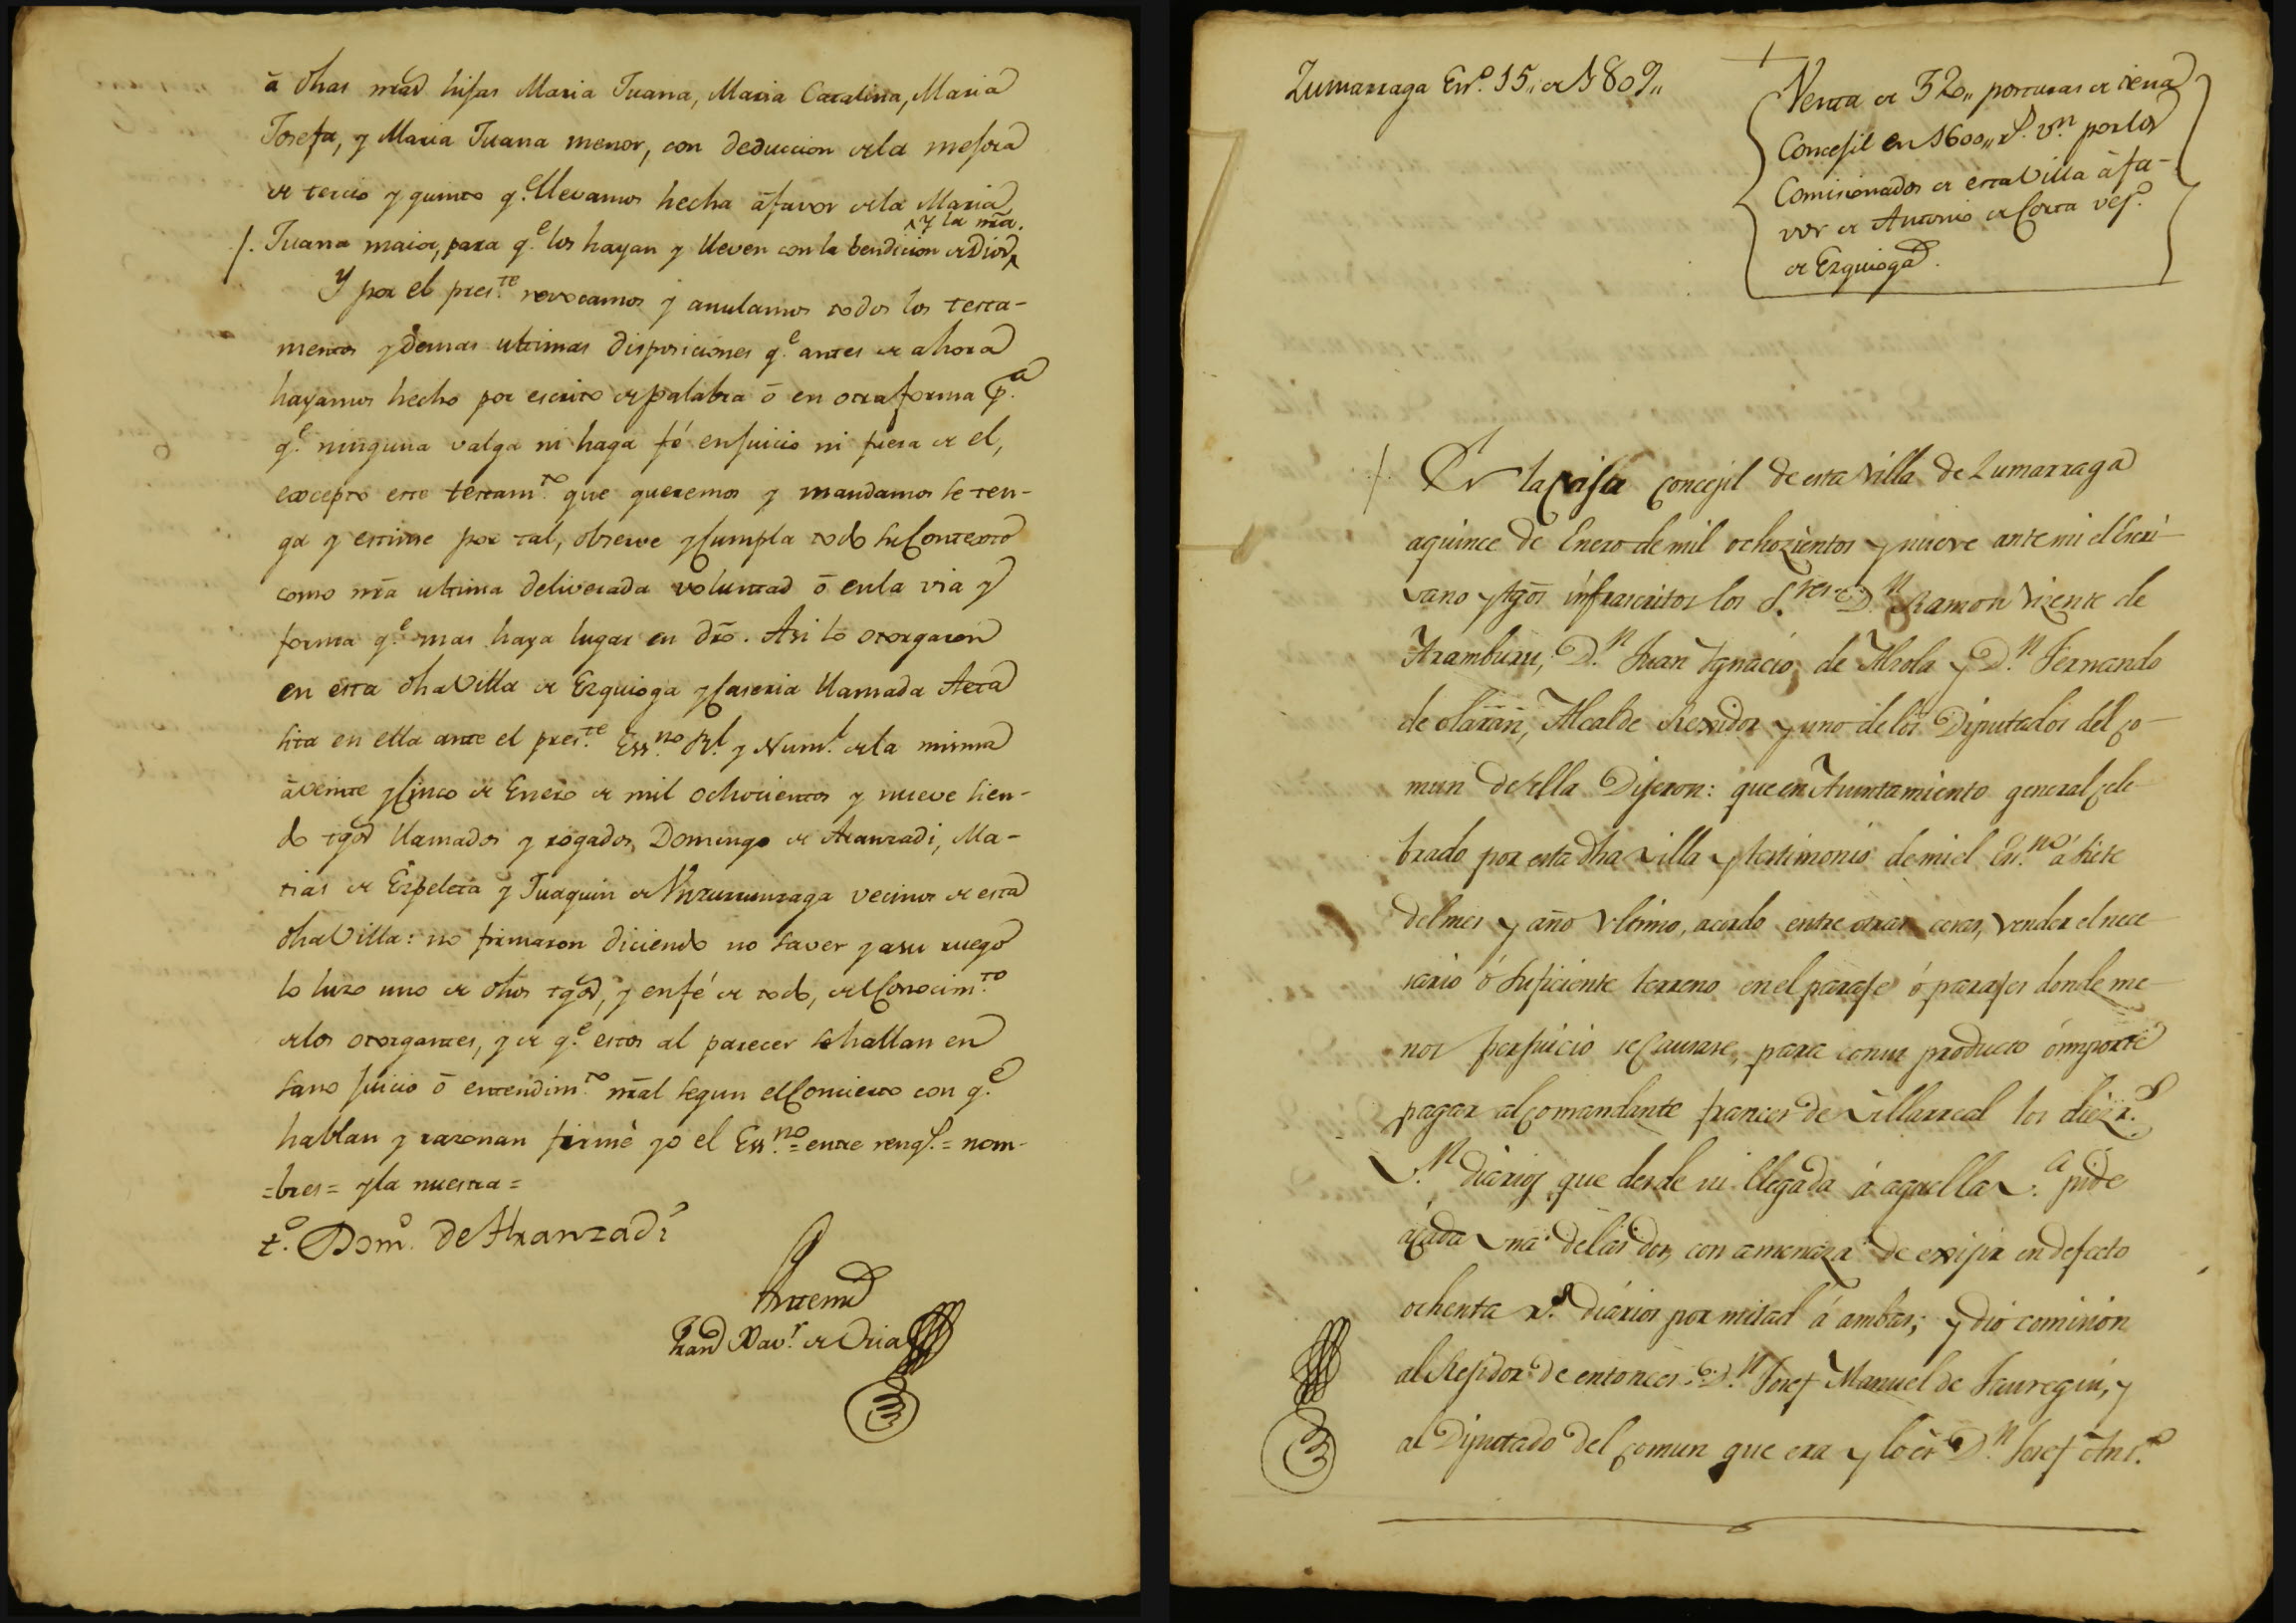 á dhas nrãs hijas Maria Juana, Maria Catalina, Maria
Josefa, y Maria Juana menor, con deduccion de la mejora
de tercio y quinto q.e llevamos hecha á favor de la Maria
y la nrã.
Juana maior, para q.e los hayan y lleven con la bendicion de Dios
Y por el pres.te revocamos y anulamos todos los testa-
mentos y demas ultimas disposiciones q.e antes de ahora
hayamos hecho por escrito de palabra ó en otra forma p.a
q.e ninguna valga ni haga fé en juicio ni fuera de el,
excepto este testam.to que queremos y mandamos se ten-
ga y estime por tal, observe y cumpla todo su contexto
como nrã ultima deliverada voluntad ó en la via y
forma q.e mas haya lugar en dró. Asi lo otorgaron
en esta dha Villa de Ezquioga y Caseria llamada Aeta
sita en ella ante el pres.te Ess.no R.l y Num.l de la misma
á veinte y cinco de Enero de mil ochocientos y nueve sien-
do tgõs llamados y rogados, Domingo de Aranzadi, Ma-
tias de Ezpeleta y Juaquin de vecinos de esta
dha Villa: no firmaron diciendo no saver y a su ruego
lo hizo uno de dhos tgõs, y en fé de todo, del conocim.to
de los otorgantes, y de q.e estos al parecer se hallan en
sano juicio ó entendim.to nrãl segun el concierto con q.e
hablan y razonan firmé yo el Ess.no = entre rengs. = nom-
=bres= y la nuestra =
t.o Dom.o de Aranzadi
Ante mi
Juan Xav.r de Oria
Zumarraga En.o 15,, de 1809,,
Venta de 32,, posturas de tierra
Concejil en 1600,, r.s v.n por los
Comisionados de esta Villa á fa-
vor de Antonio de Corta vez.o
de Ezquioga.
En la Casa Concejil de esta Villa de Zumarraga
a quince de Enero de mil ochozientos y nueve ante mi el Escri-
vano y tgõs infrascritos los S.res D.n Ramon Vizente de
Aramburu, D.n Juan Ygnacio de Alzola y D.n Fernando
de Olaran, Alcalde Rexidor y uno de los Diputados del co-
mun de ella Dijeron: que en Ayuntamiento general cele-
brado por esta dha villa y testimonio de mi el Es.no á siete
del mes y año ultimo, acordo entre otras cosas, vender el nece-
sario ó suficiente terreno en el paraje ó parajes donde me-
nos perjuicio se causase, para con su producto ó importe
pagar al comandante frances de Villarreal los diez r.s
v.n diarios que desde su llegada á aquella V.a pide
á cada una de las dos, con amenaza de exijir en defecto
ochenta r.s diarios por mitad á ambas; y dio comision
al Rejidor de entonces D.n Josef Manuel de Jauregui, y
al Diputado del comun que era y lo es D.n Josef Ant.o